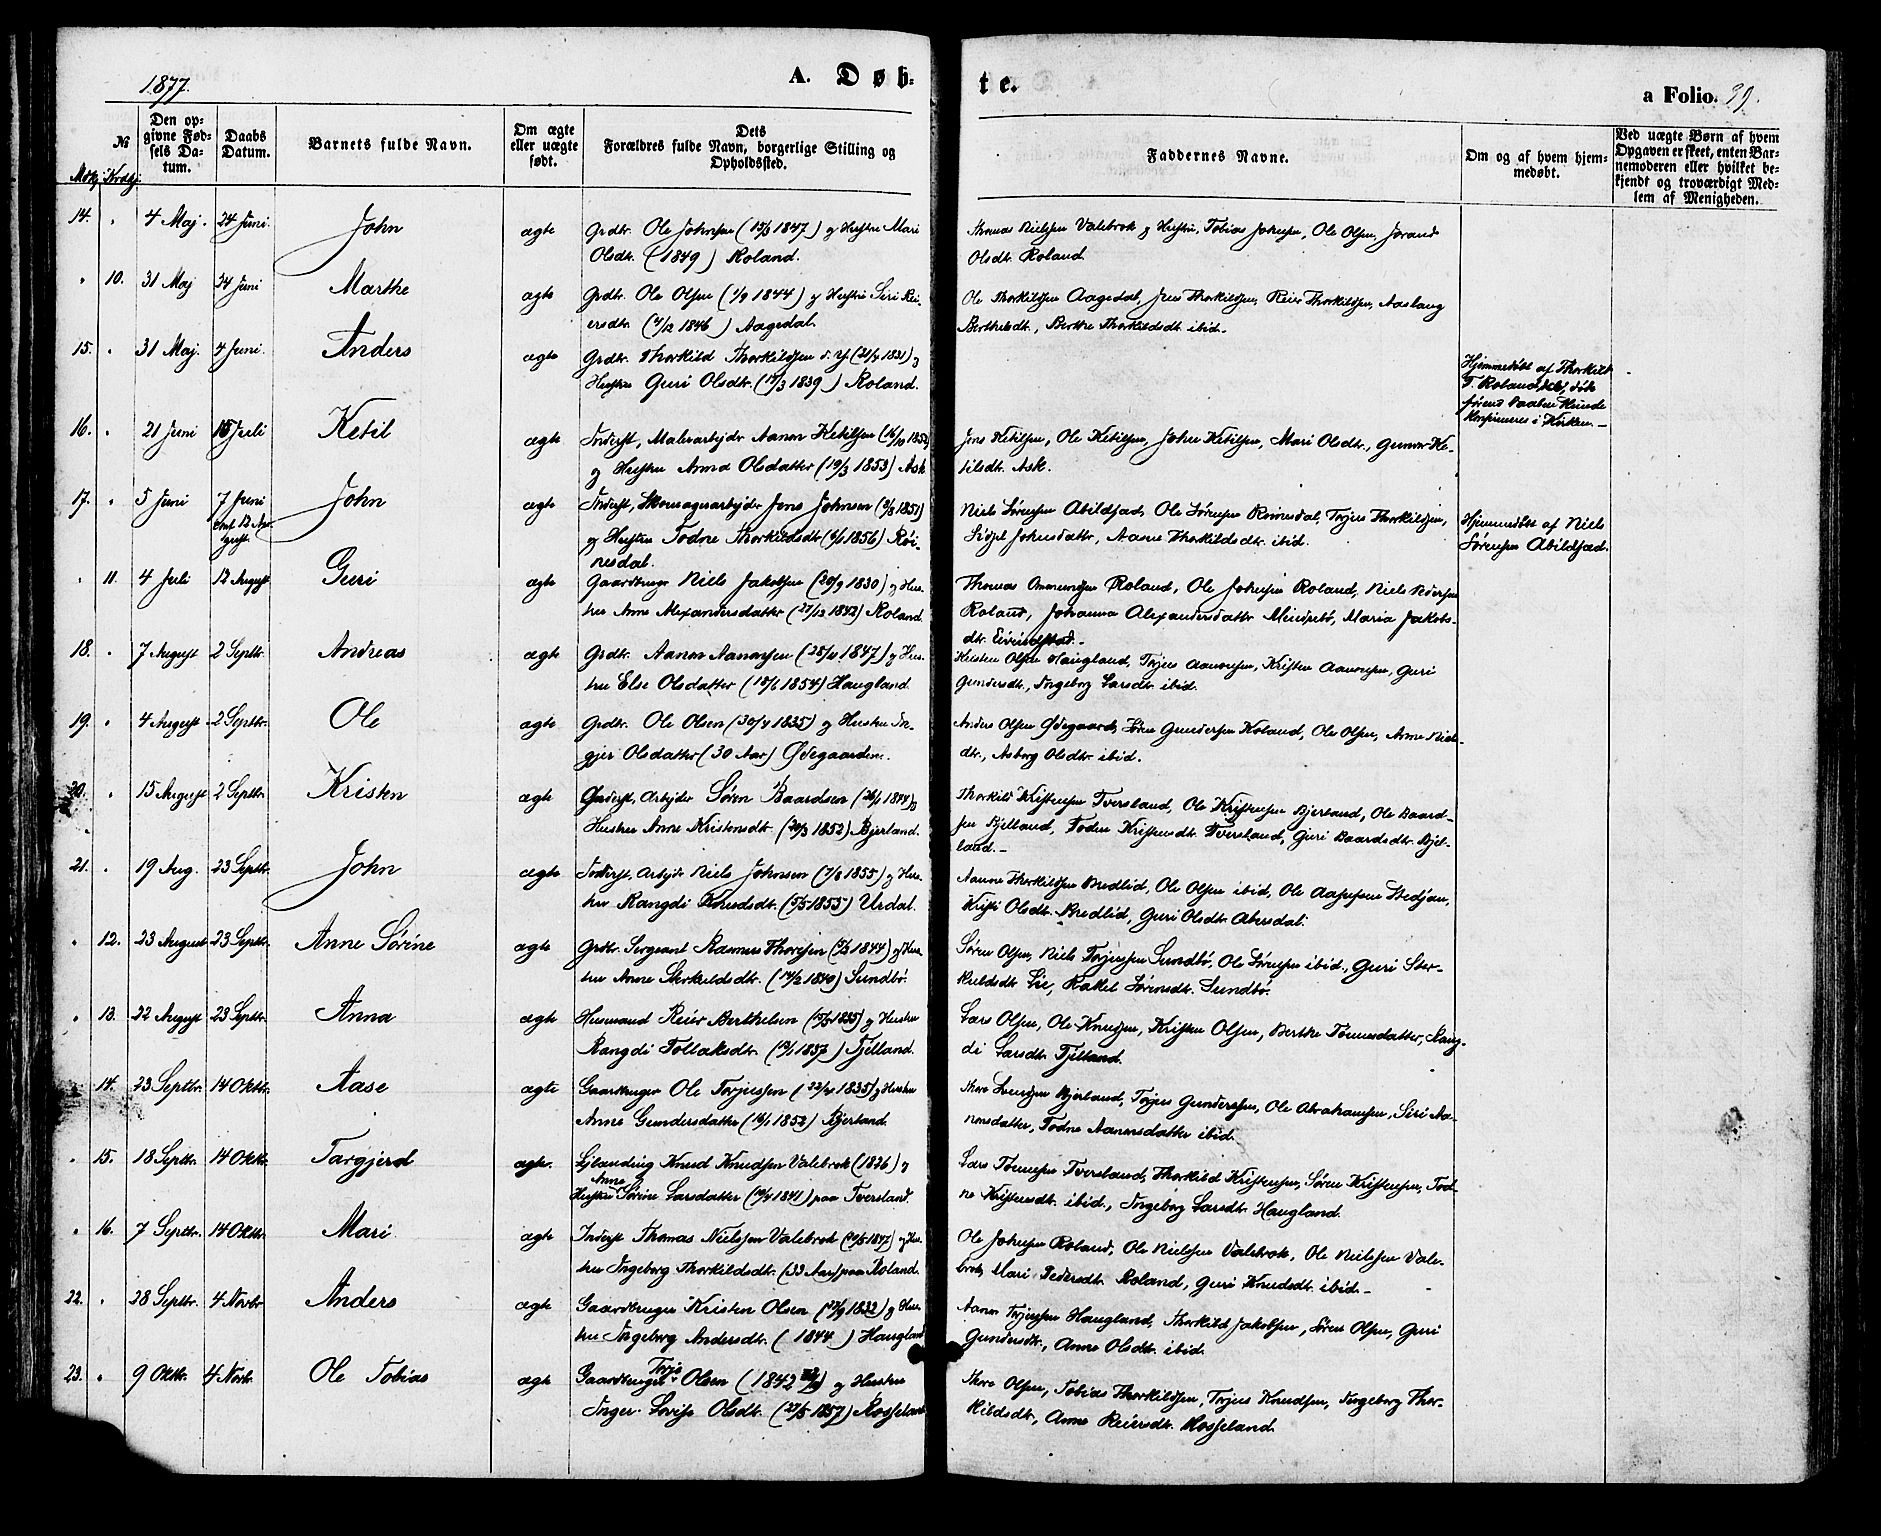 1877.
A. Døb-
te.
a Folio. 39.
№
Mdkj. Kvdkj.
Den op-
givne Fød-
sels Da-
tum.
Daabs
Datum.
Barnets fulde Navn.
Om ægte
eller uægte
født.
Dets
Forældres fulde Navn, borgerlige Stilling og
Opholdssted.
Faddernes Navne.
Om og af hvem hjem-
medøbt.
Ved uægte Børn af hvem
Opgaven er skeet, enten Bar-
nemoderen eller hvilket be-
kjendt og troværdigt Med-
lem af Menigheden.
14. " 4 Maj. 24 Juni. John ægte Grdbr. Ole Johnsen (1847) og Hustru Mari
Olsdt. (1849) Roland.
Thomas Nielsen Valebrok og Hustru, Tobias Johnsen, Ole Olsen, Jorand
Olsdt. Roland
" 10. 31 Maj 24 Juni Marthe ægte Grdbr. Ole Olsen (1/9 1844) og Hustru Siri Rei-
ersdt. (1/12 1846) Aagedal.
Ole Thorkildsen Aagedal, Jens Thorkildsen, Reier Thorkildsen, Aaslaug
Berthelsdt., Berthe Thorkildsdt. ibid.
15. " 31 Maj. 4 Juni. Anders ægte Grdbr. Thorkild Thorkildsen d. y. (1831) og
Hustru Guri Olsdt. (1839) Roland.
Hjemmedøbt af Thorkild
T. Roland, døde
førend Daaben kunde
konfirmeres i Kirken.
16. " 21 Juni 15 Juli Ketil ægte Inderst, Malerarbejder Aanon Ketilsen (16/10 1852)
og Hustru Anna Olsdatter (19/3 1853) Ask
Jens Ketilsen, Ole Ketilsen, John Ketilsen, Mari Olsdt., Gunvor Ke-
tilsdt. Ask.
17. " 5 Juni 7 Juni John ægte Inderst, Skomagerarbejder Jens Johnsen (1851)
og Hustru Todne Thorkildsdt. (1856) Røi-
nesdal.
Niels Sørensen Abildsad, Ole Sørensen Roinesdal, Torjus Thorkildsen,
Sidsel Johnsdatter, Aasne Thorkildsdt. ibid.
Hjemmedøbt af Niels
Sørensen Abildsad.
" 11. 4 Juli 12 August Guri ægte Gaardbruger Niels Jakobsen (20/9 1830) og Hus-
tru Anne Alexandersdatter (27/12 1842) Roland.
Thomas Ommundsen Roland, Ole Johnsen Roland, Niels Pedersen
Roland, Johanna Alexandersdatter Mindrebø, Maria Jakobs-
dt. Eivindstad.
18. " 7 August 2 Septbr. Andreas ægte Grdbr. Aanon Aanonsen (1847) og Hus-
tru Else Olsdatter (1854) Haugland.
Kristen Olsen Haugland, Torjus Aanonsen, Kristen Aanonsen, Guri
Gundersdt., Ingeborg Larsdt. ibid.
19. " 4 August 2 Septbr. Ole ægte Grdbr. Ole Olsen (30/4 1835) og Hustru In-
gjer Olsdatter (30 Aar) Ødegaarden.
Anders Olsen Ødegaard, Søren Gundersen Roland, Ole Olsen, Anne Niels-
dt., Asborg Olsdt. ibid.
20. " 15 August 2 Septbr. Kristen ægte Inderst, Arbejder Søren Baardsen (1844) og
Hustru Anne Kristensdt. (20/3 1852) Bjerland.
Thorkild Kristensen Tversland, Ole Kristensen Bjerland, Ole Baard-
sen Bjelland, Todne Kristensdt. Tversland, Guri Baardsdt. Bjel-
land.
21. " 19 Aug. 23 Septbr. John ægte Inderst, Arbejder Niels Johnsen (1855) og Hus-
tru Rangdi Knudsdt. (5/5 1853) Urdal.
Aanon Thorkildsen Bredlid, Ole Olsen ibid, Ole Stedjan,
Kristi Olsdt. Bredlid, Guri Olsdt. Abersdal.
" 12. 23 August 23 Septbr. Anne Sørine ægte Grdbr. Sergeant Rasmus Thoresen (1844) og Hus-
tru Anne Sterkildsdt. (14/2 1840) Sundbø.
Søren Olsen, Niels Torjussen Sundbø, Ole Sørensen ibid., Guri Ster-
kildsdt. Lie, Rakel Sørensdt. Sundbø.
" 13. 22 August 23 Septbr. Anna ægte Husmand Reier Berthelsen (1835) og Hustru
Rangdi Tollaksdt. (1837) Tjelland.
Lars Olsen, Ole Knudsen, Kristen Olsen, Berthe Tønnesdatter, Rang-
di Larsdt. Tjelland.
" 14. 23 Septbr. 14 Oktbr. Aase ægte Gaardbruger Ole Torjussen (22/4 1835) og Hustru
Anne Gundersdatter (16/1 1852) Bjerland.
Thore Bjerland, Torjus Gundersen, Ole Abrahamsen, Siri Aa-
nonsdatter, Todne Aanonsdatter ibid.
" 15. 18 Septbr. 14 Oktbr. Targjerd ægte. Knud Knudsen Valebrok (1826) og
Anne
Hustru Sørine Larsdatter (1841) paa Tversland.
Lars Tønnesen Tversland, Thorkild Kristensen, Søren Kristensen, Tod-
ne Kristensdt. ibid., Ingeborg Larsdt. Haugland.
" 16. 7 Septbr. 14 Oktbr. Mari ægte Inderst Thomas Nielsen Valebrok (1847) og Hus-
tru Ingeborg Thorkildsdt. (33 Aar) paa Roland.
Ole Johnsen Roland, Ole Nielsen Valebrok, Ole Nielsen Vale-
brok, Mari Pedersdt. Roland, Guri Knudsdt. ibid.
22. " 28 Septbr. 4 Novbr Anders ægte Gaardbruger Kristen Olsen (1832) og Hus-
tru Ingeborg Andersdt. (1844) Haugland
Aanon Torjussen Haugland, Thorkild Jakobsen, Søren Olsen, Guri
Gundersdt., Anne Olsdt. ibid.
23. " 9 Oktbr. 4 Novb. Ole Tobias ægte Gaardbruger Torje Olsen (1842) og Hustru
Inger Lovise Olsdt. (27/5 1857) Rosseland
Thore Olsen, Tobias Thorkildsen, Torjus Knudsen, Ingeborg Thor-
kildsdt., Anne Reiersdt. Rosseland.